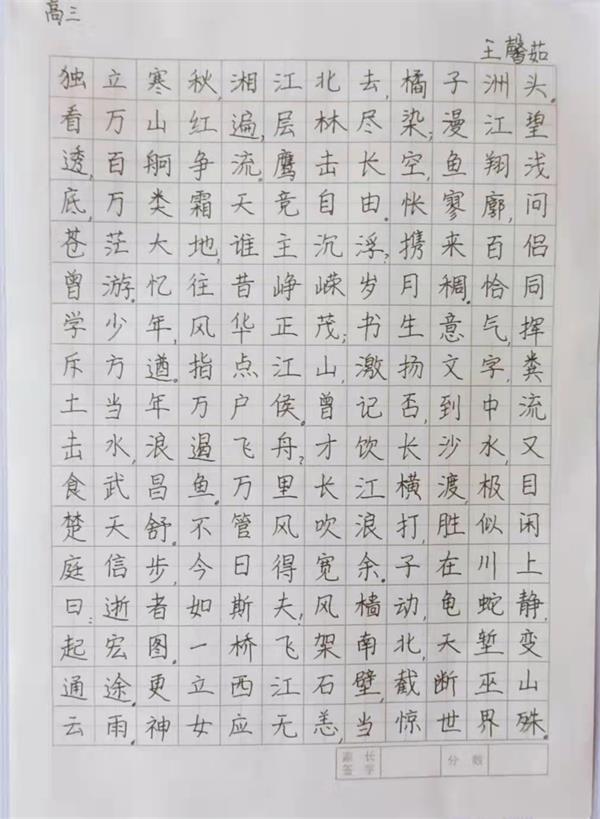 高三
王馨茹
独立寒秋,湘江北去,橘子洲头。
看万山红遍,层林尽染;漫江碧
透,百舸争流。鹰击长空,鱼翔浅
底,万类霜天竞自由。怅寥廓,问
苍茫大地,谁主沉浮?携来百侣
曾游。忆往昔峥嵘岁月稠。恰同
学少年,风华正茂;书生意气,挥
斥方遒。指点江山,激扬文字,粪
土当年万户侯。曾记否,到中流
击水,浪遏飞舟?才饮长沙水,又
食武昌鱼。万里长江横渡,极目
楚天舒。不管风吹浪打,胜似闲
庭信步,今日得宽余。子在川上
曰:逝者如斯夫!风樯动,龟蛇静,
起宏图。一桥飞架南北,天堑变
通途。更立西江石壁,截断巫山
云雨。神女应无恙,当惊世界殊。
家长签字
分数